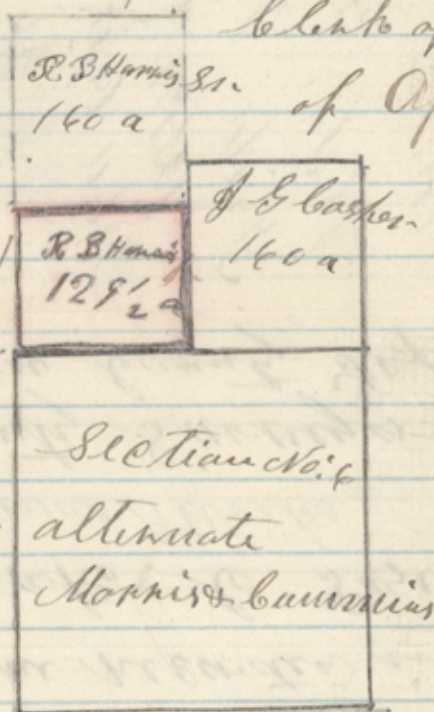 Clerk of
R B Harris Sr.
160 a
of Ap
J G Cosper
160 a
R B Harris
129 1/2 a
Section No. 6
alternate
Morris & Cummins